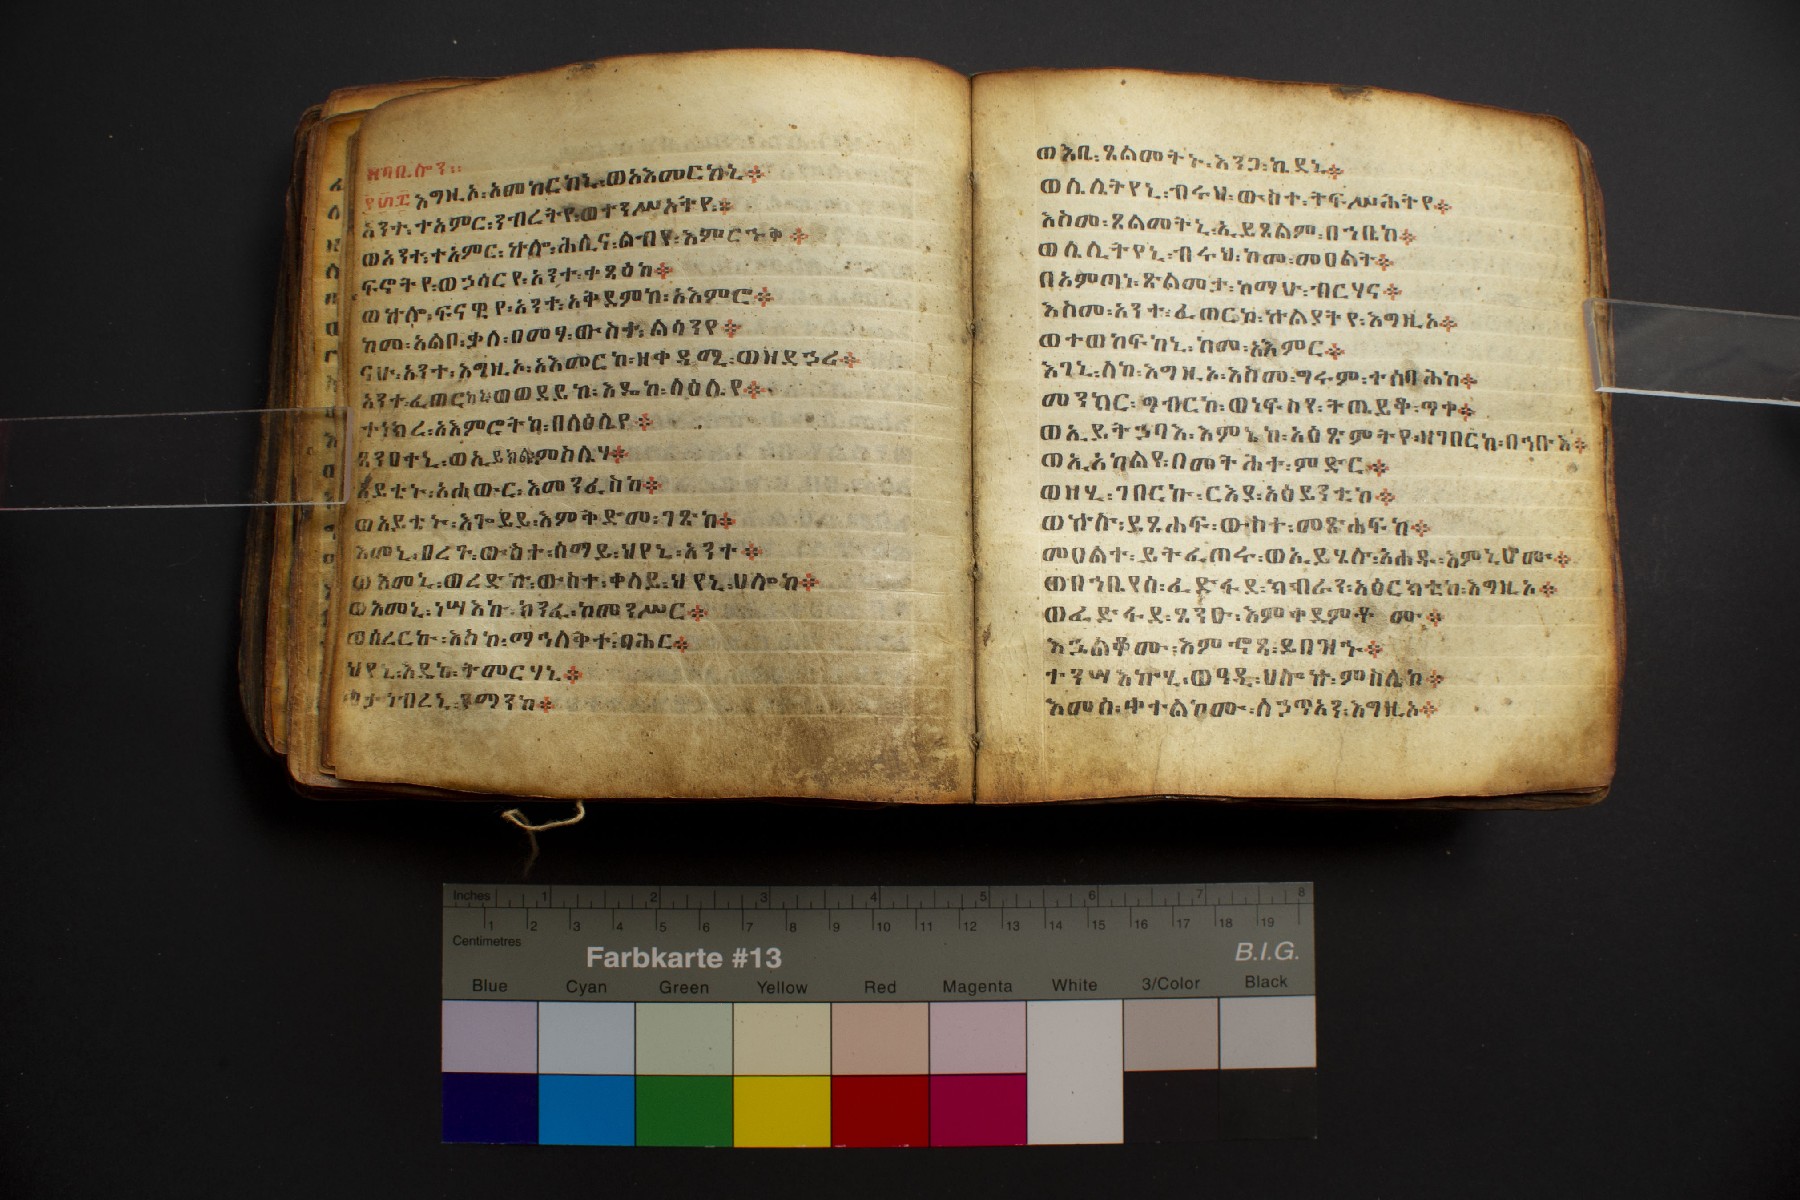 ዘባቢሎን።
፻፴፰ እግዚኦ፡አመከርከኒ፡ወአእመርከኒ፨
አንተ፡ተአምር፡ንብረትየ፡ወተንሥአትየ፨
ወአንተ፡ተአምር፡ኵሎ፡ሕሊና፡ልብየ፡እምርኁቅ፨
ፍኖትየ፡ወኃሳርየ፡አንተ፡ቀጻዕከ፨
ወኵሎ፡ፍናዊየ፡አንተ፡አቅደምከ፡አእምሮ፨
ከመ፡አልቦ፡ቃለ፡ዐመፃ፡ውስተ፡ልሳንየ፨
ናሁ፡አንተ፡እግዚኦ፡አእመርከ፡ዘቀዳሚ፡ወዘደኃሪ፨
አንተ፡ፈጠርከኒ፡ወወደይከ፡እዴከ፡ላዕሌየ፨
ተነክረ፡አእምሮትከ፡በላዕሌየ፨
ጸንዐተኒ፡ወኢይክልምስሌሃ፨
አይቴኑ፡አሐውር፡እመንፈስከ፨
ወአይቴኑ፡እጐይይ፡እምቅድመ፡ገጽከ፨
እመኒ፡ዐረጉ፡ውስተ፡ሰማይ፡ህየኒ፡አንተ፨
ወእመኒ፡ወረድኩ፡ውስተ፡ቀላይ፡ህየኒ፡ሀሎከ፨
ወእመኒ፡ነሣእኩ፡ክንፈ፡ከመ፡ንሥር፨
ወሰረርኩ፡እስከ፡ማኅለቅተ፡ባሕር፨
ህየኒ፡እዴከ፡ትመርሃኒ፨
ወታነብረኒ፡የማንከ፨
ወእቤ፡ጸልመትኑ፡እንጋ፡ኬደኒ፨
ወሌሊትየኒ፡ብሩህ፡ውስተ፡ትፍሥሕትየ፨
እስመ፡ጸልመትኒ፡ኢይጸልም፡በኀቤከ፨
ወሌሊትየኒ፡ብሩህ፡ከመ፡መዐልት፨
በአምጣነ፡ጽልመታ፡ከማሁ፡ብርሃና፨
እስመ፡አንተ፡ፈጠርከ፡ኵልያትየ፡እግዚኦ፨
ወተወከፍከኒ፡ከመ፡አእምር፨
እገኒ፡ለከ፡እግዚኦ፡እስመ፡ግሩም፡ተሰባሕከ፨
መንክር፡ግብርከ፡ወነፍስየ፡ትጤይቆ፡ጥቀ፨
ወኢይትኃባእ፡እምኔከ፡አዕጽምትየ፡ዘገበርከ፡በኅቡእ፨
ወኢአካልየ፡በመትሕተ፡ምድር፨
ወዘሂ፡ገበርኩ፡ርእያ፡አዕይንቲከ፨
ወኵሉ፡ይጸሐፍ፡ውስተ፡መጽሐፍከ፨
መዐልተ፡ይትፈጠሩ፡ወኢይሄሉ፡አሐዱ፡እምኔሆሙ፨
ወበኀቤየሰ፡ፈድፋደ፡ክቡራን፡አዕርክቲከ፡እግዚኦ፨
ወፈድፋደ፡ጸንዑ፡እምቀደምቶሙ፨
እኌልቆሙ፡እምኆጻ፡ይበዝኁ፨
ተንሣእኩሂ፡ወዓዲ፡ሀሎኩ፡ምስሌከ፨
እመሰ፡ቀተልኮሙ፡ለኃጥአን፡እግዚኦ፨
Inches 1 2 3 4 5 6 7 8
1 2 3 4 5 6 7 8 9 10 11 12 13 14 15 16 17 18 19
Centimetres
Farbkarte #13 B.I.G.
Blue Cyan Green Yellow Red Magenta White 3/Color Black